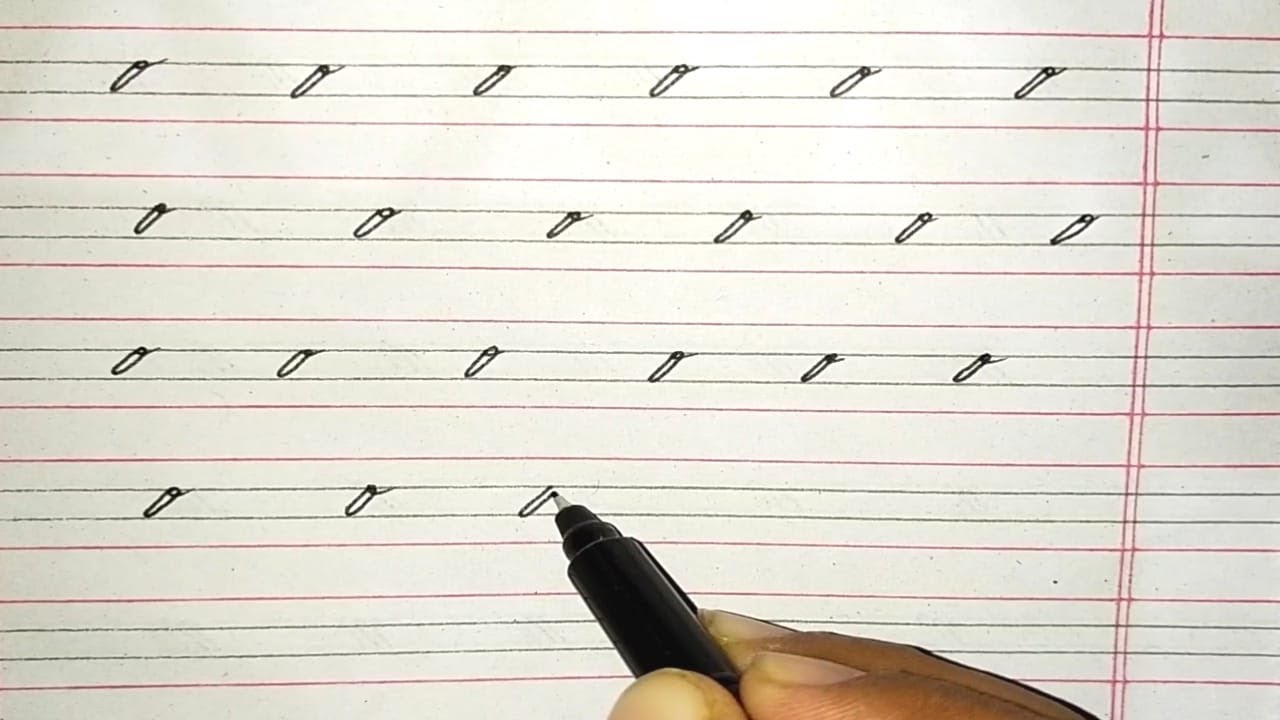 o o o o o o
o o o o o o
o o o o o o
o o o